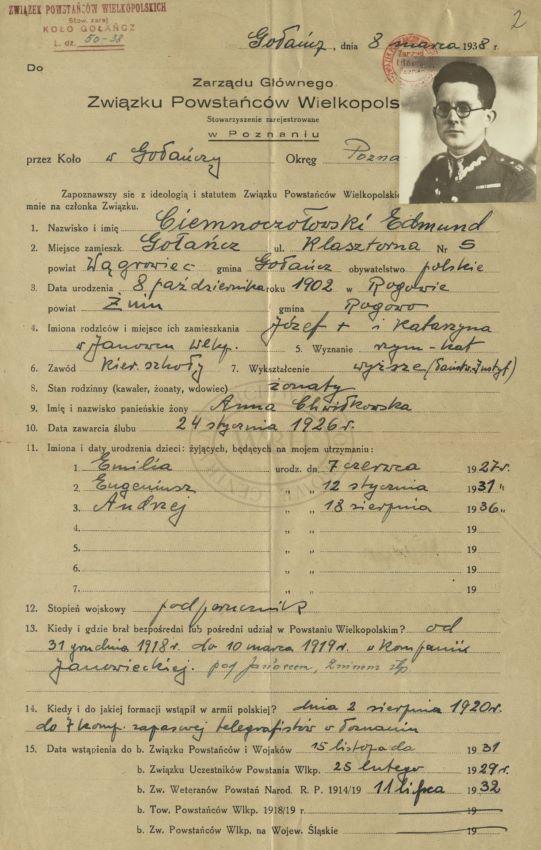 ZWIĄZEK POWSTAŃCÓW WIELKOPOLSKICH
Stow. zarej
KOŁO GOŁAŃCZ
L. dz. 50-38
2
Gołańcz, dnia 8 marca 1938 r.
Do
Zarządu Głównego
Związku Powstańców Wielkopols
Stowarzyszenie zarejestrowane
w Poznaniu
przez Koło w Gołańczy Okręg Pozna
Zapoznawszy sie z ideologią i statutem Związku Powstańców Wielkopolski
mnie na członka Związku.
1. Nazwisko i imię Ciemnoczołowski Edmund
2. Miejsce zamieszk. Gołańcz ul. Klasztorna Nr 5
powiat Wągrowiec gmina Gołańcz obywatelstwo polskie
3. Data urodzenia 8 października roku 1902 w Rogowie
powiat Żnin gmina Rogowo
4. Imiona rodziców i miejsce ich zamieszkania Józef + i Katarzyna
w Janowcu Wlkp. 5. Wyznanie rzym-kat
6. Zawód kier. szkoły 7. Wykształcenie wyższe (Państw. Instyt)
8. Stan rodzinny (kawaler, żonaty, wdowiec) żonaty
9. Imię i nazwisko panieńskie żony Anna Chwiłkowska
10. Data zawarcia ślubu 24 stycznia 1926 r.
11. Imiona i daty urodzenia dzieci: żyjących, będących na mojem utrzymaniu:
1. Emilia urodz. dn. 7 czerwca 1927 r.
2. Eugeniusz „ „ 12 stycznia 1931 „
3. Andrzej „ „ 18 sierpnia 1936 „
4. „ „ 19
5. „ „ 19
6. „ „ 19
7. „ „ 19
12. Stopień wojskowy podporucznik
13. Kiedy i gdzie brał bezpośredni lub pośredni udział w Powstaniu Wielkopolskim? od
31 grudnia 1918 r. do 10 marca 1919 r. w Kompanii
Janowieckiej. pod Janowcem, Żninem itp
14. Kiedy i do jakiej formacji wstąpił w armii polskiej? dnia 2 sierpnia 1920 r.
do 7 komp. zapasowej telegrafistów w Poznaniu
15. Data wstąpienia do b. Związku Powstańców i Wojaków 15 listopada 1931
b. Związku Uczestników Powstania Wlkp. 25 lutego 1929 r.
b. Zw. Weteranów Powstań Narod. R. P. 1914/19 11 lipca 1932
b. Tow. Powstańców Wlkp. 1918/19 r. 19
b. Zw. Powstańców Wlkp. na Wojew. Śląskie 19